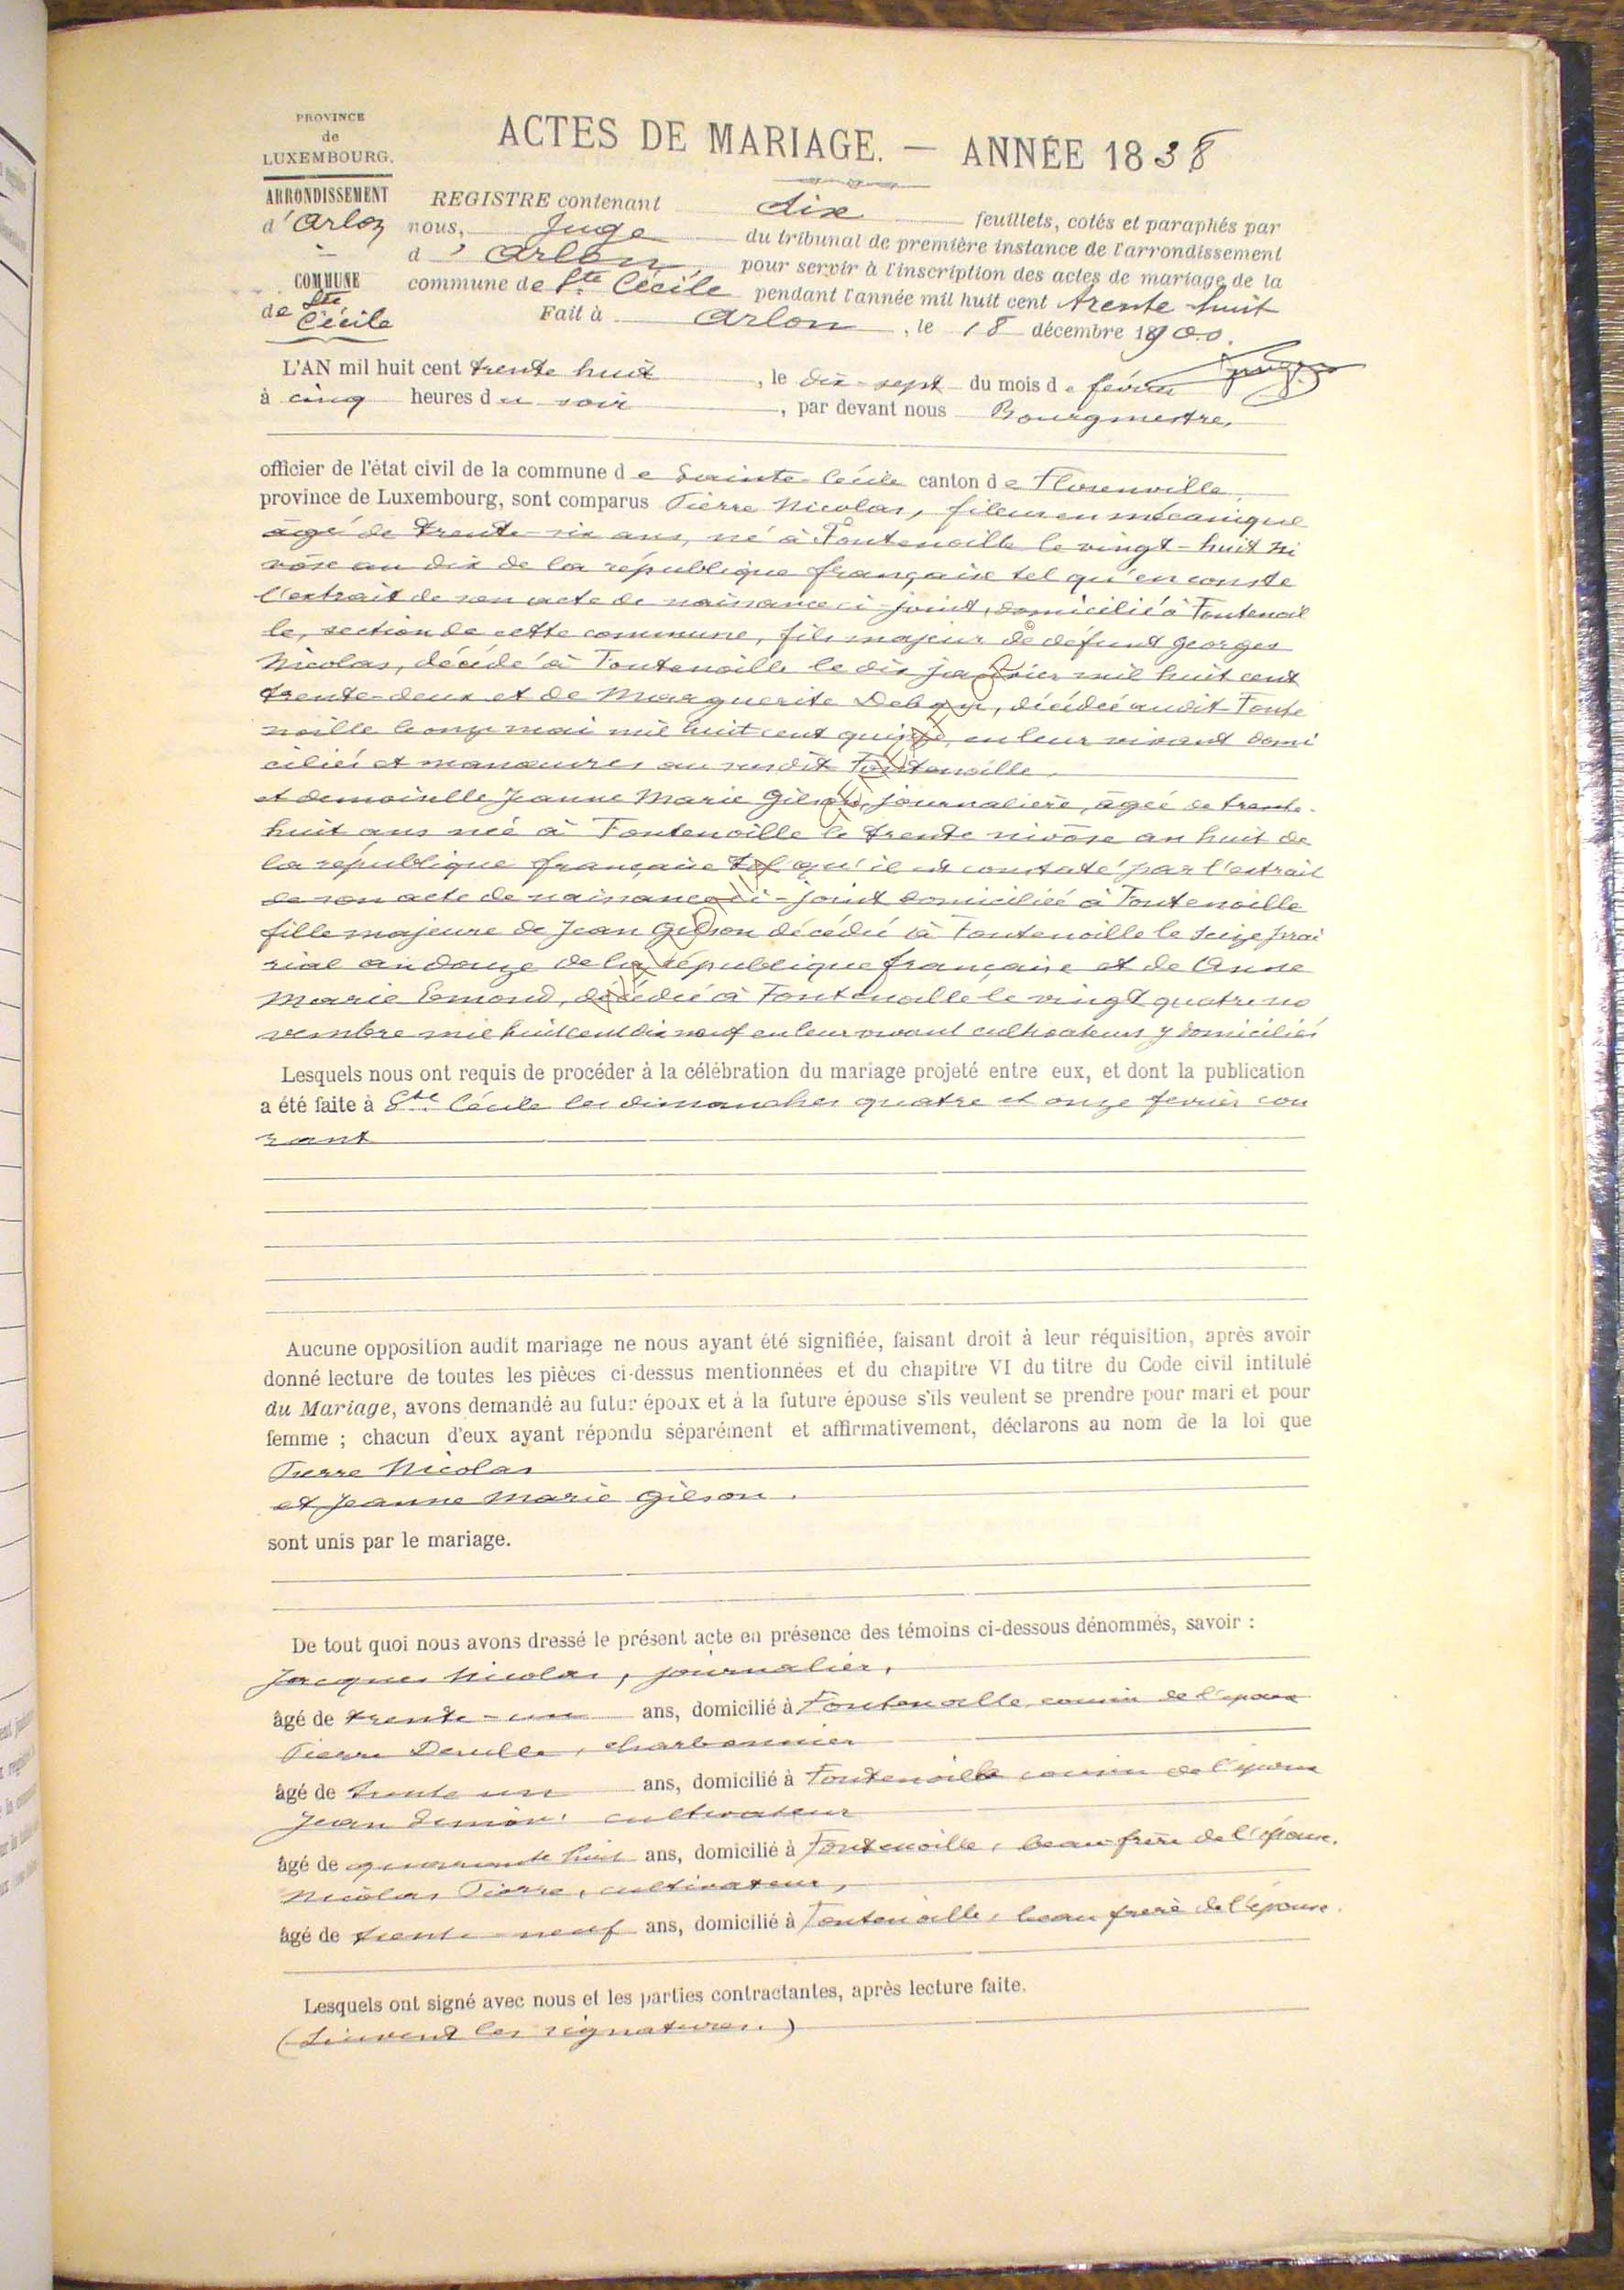 PROVINCE
de
LUXEMBOURG.
ARRONDISSEMENT
d'Arlon
COMMUNE
de Ste
Cécile
ACTES DE MARIAGE. — ANNÉE 1838
REGISTRE contenant dix feuillets, cotés et paraphés par
nous, Juge du tribunal de première instance de l'arrondissement
d'Arlon, pour servir à l'inscription des actes de mariage de la
commune de Ste Cécile pendant l'année mil huit cent trente huit
Fait à Arlon, le 18 décembre 1900.
L'AN mil huit cent trente huit, le dix-sept du mois de février
à cinq heures du soir, par devant nous Bourgmestre,
officier de l'état civil de la commune de Sainte-Cécile canton de Florenville,
province de Luxembourg, sont comparus Pierre Nicolas, fileur en mécanique
âgé de trente-six ans, né à Fontenoille le vingt-huit ni
vôse an dix de la république française tel qu'en conste
l'extrait de son acte de naissance ci-joint, domicilié à Fontenoil
le, section de cette commune, fils majeur de défunt Georges
Nicolas, décédé à Fontenoille le dix janvier mil huit cent
trente-deux et de Marguerite, décédée audit Fonte
noille le onze mai mil huit cent quinze, en leur vivant domi
ciliés et manœuvres au susdit Fontenoille,
et demoiselle Jeanne Marie Gilson, journalière, âgée de trente-
huit ans née à Fontenoille le trente nivôse an huit de
la république française tel qu'il est constaté par l'extrait
de son acte de naissance ci-joint domiciliée à Fontenoille
fille majeure de Jean Gilson décédé à Fontenoille le seize prai
rial an douze de la république française et de Anne
Marie Emond, décédée à Fontenoille le vingt quatre no
vembre mil huit cent dix neuf en leur vivant cultivateurs y domiciliés
Lesquels nous ont requis de procéder à la célébration du mariage projeté entre eux, et dont la publication
a été faite à Ste Cécile les dimanches quatre et onze février cou
rant
Aucune opposition audit mariage ne nous ayant été signifiée, faisant droit à leur réquisition, après avoir
donné lecture de toutes les pièces ci-dessus mentionnées et du chapitre VI du titre du Code civil intitulé
du Mariage, avons demandé au futur époux et à la future épouse s'ils veulent se prendre pour mari et pour
femme ; chacun d'eux ayant répondu séparément et affirmativement, déclarons au nom de la loi que
Pierre Nicolas
et Jeanne Marie Gilson.
sont unis par le mariage.
De tout quoi nous avons dressé le présent acte en présence des témoins ci-dessous dénommés, savoir :
Jacques Nicolas, journalier,
âgé de trente-un ans, domicilié à Fontenoille cousin de l'époux
Pierre, charbonnier
âgé de trente un ans, domicilié à Fontenoille cousin de
Jean, cultivateur
âgé de quarante huit ans, domicilié à Fontenoille, beau-frère de l'épouse.
Nicolas Pierre, cultivateur,
âgé de trente-neuf ans, domicilié à Fontenoille, beau frère de l'épouse.
Lesquels ont signé avec nous et les parties contractantes, après lecture faite.
(Suivent les signatures.)